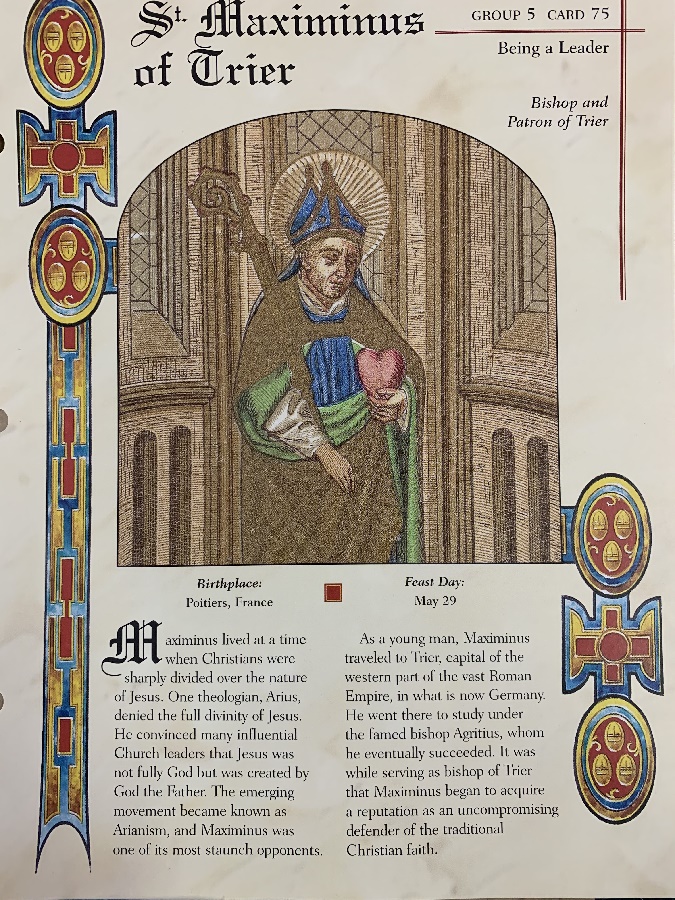 St. Maximinus
of Trier
GROUP 5 CARD 75
Being a Leader
Bishop and
Patron of Trier
Birthplace:
Poitiers, France
Feast Day:
May 29
Maximinus lived at a time
when Christians were
sharply divided over the nature
of Jesus. One theologian, Arius,
denied the full divinity of Jesus.
He convinced many influential
Church leaders that Jesus was
not fully God but was created by
God the Father. The emerging
movement became known as
Arianism, and Maximinus was
one of its most staunch opponents.
As a young man, Maximinus
traveled to Trier, capital of the
western part of the vast Roman
Empire, in what is now Germany.
He went there to study under
the famed bishop Agritius, whom
he eventually succeeded. It was
while serving as bishop of Trier
that Maximinus began to acquire
a reputation as an uncompromising
defender of the traditional
Christian faith.